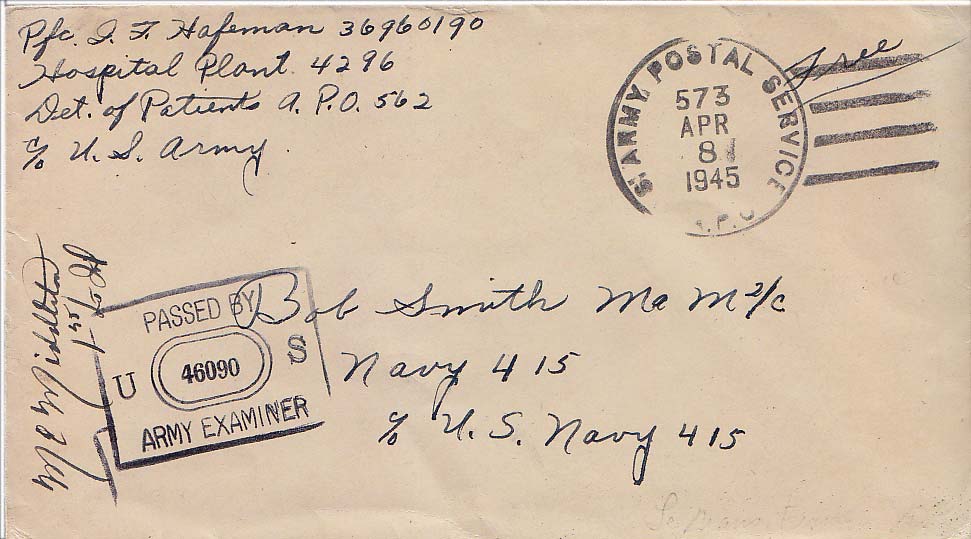 Pfc. I. F. Hafeman 36960190
Hospital Plant 4296
Det. of Patients A.P.O. 562
c/o U.S. Army
Free
U.S. ARMY POSTAL SERVICE
573
APR
8
1945
A.P.O
PASSED BY
U 46090 S
ARMY EXAMINER
1st Lt
Bob Smith Mo M 2/c
Navy 415
c/o U.S. Navy 415